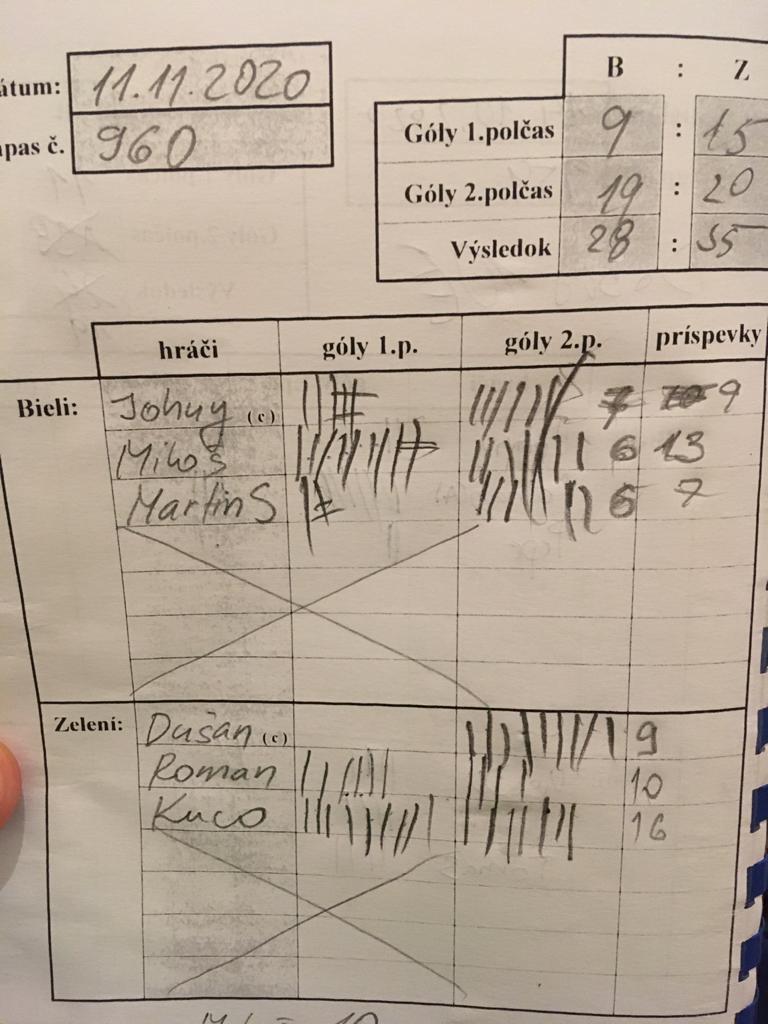 átum: 11.11.2020
pas č. 960
B : Z
Góly 1.polčas 9 : 15
Góly 2.polčas 19 : 20
Výsledok 28 : 35
hráči góly 1.p. góly 2.p. príspevky
Bieli: Johny (c) 9
Miloš 6 13
Martin S 6 7
Zelení: Dušan (c) 9
Roman 10
Kuco 16